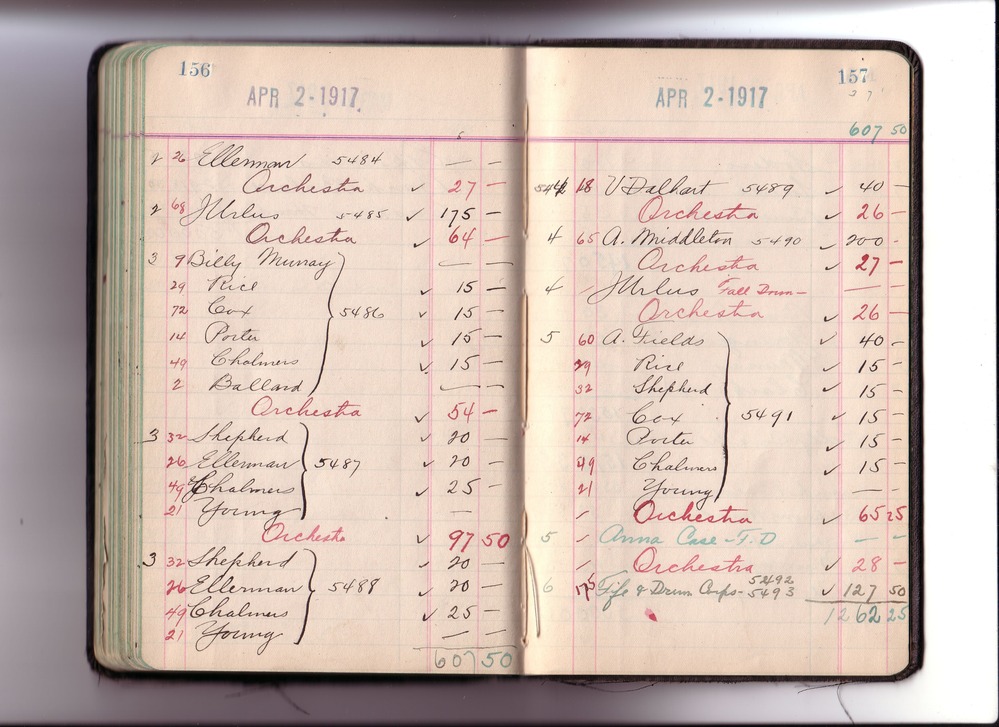 156
APR 2-1917
2 26 Ellerman 5484 — —
Orchestra ✓ 27 —
2 68 J Urlus 5485 ✓ 175 —
Orchestra ✓ 64 —
3 9 Billy Murray — —
29 Rice ✓ 15 —
72 Cox 5486 ✓ 15 —
14 Porter ✓ 15 —
49 Chalmers ✓ 15 —
2 Ballard — —
Orchestra ✓ 54 —
3 32 Shepherd ✓ 20 —
26 Ellerman 5487 ✓ 20 —
49 Chalmers ✓ 25 —
21 Young —
Orchestra ✓ 97 50
3 32 Shepherd ✓ 20 —
26 Ellerman 5488 ✓ 20 —
49 Chalmers ✓ 25 —
21 Young — —
607 50
157
APR 2-1917
607 50
18 V Dalhart 5489 ✓ 40 —
Orchestra ✓ 26 —
4 65 A. Middleton 5490 ✓ 200 -
Orchestra ✓ 27 —
4 J Urlus Fall Down — —
Orchestra ✓ 26 —
5 60 A. Fields ✓ 40 —
29 Rice ✓ 15 —
32 Shepherd ✓ 15 —
72 Cox 5491 ✓ 15 —
14 Porter ✓ 15 —
49 Chalmers ✓ 15 —
21 Young — —
Orchestra ✓ 65 25
5 Anna Case - F.D — —
Orchestra ✓ 28 —
6 175 Fife & Drum Corps- 5492 5493 ✓ 127 50
1262 25